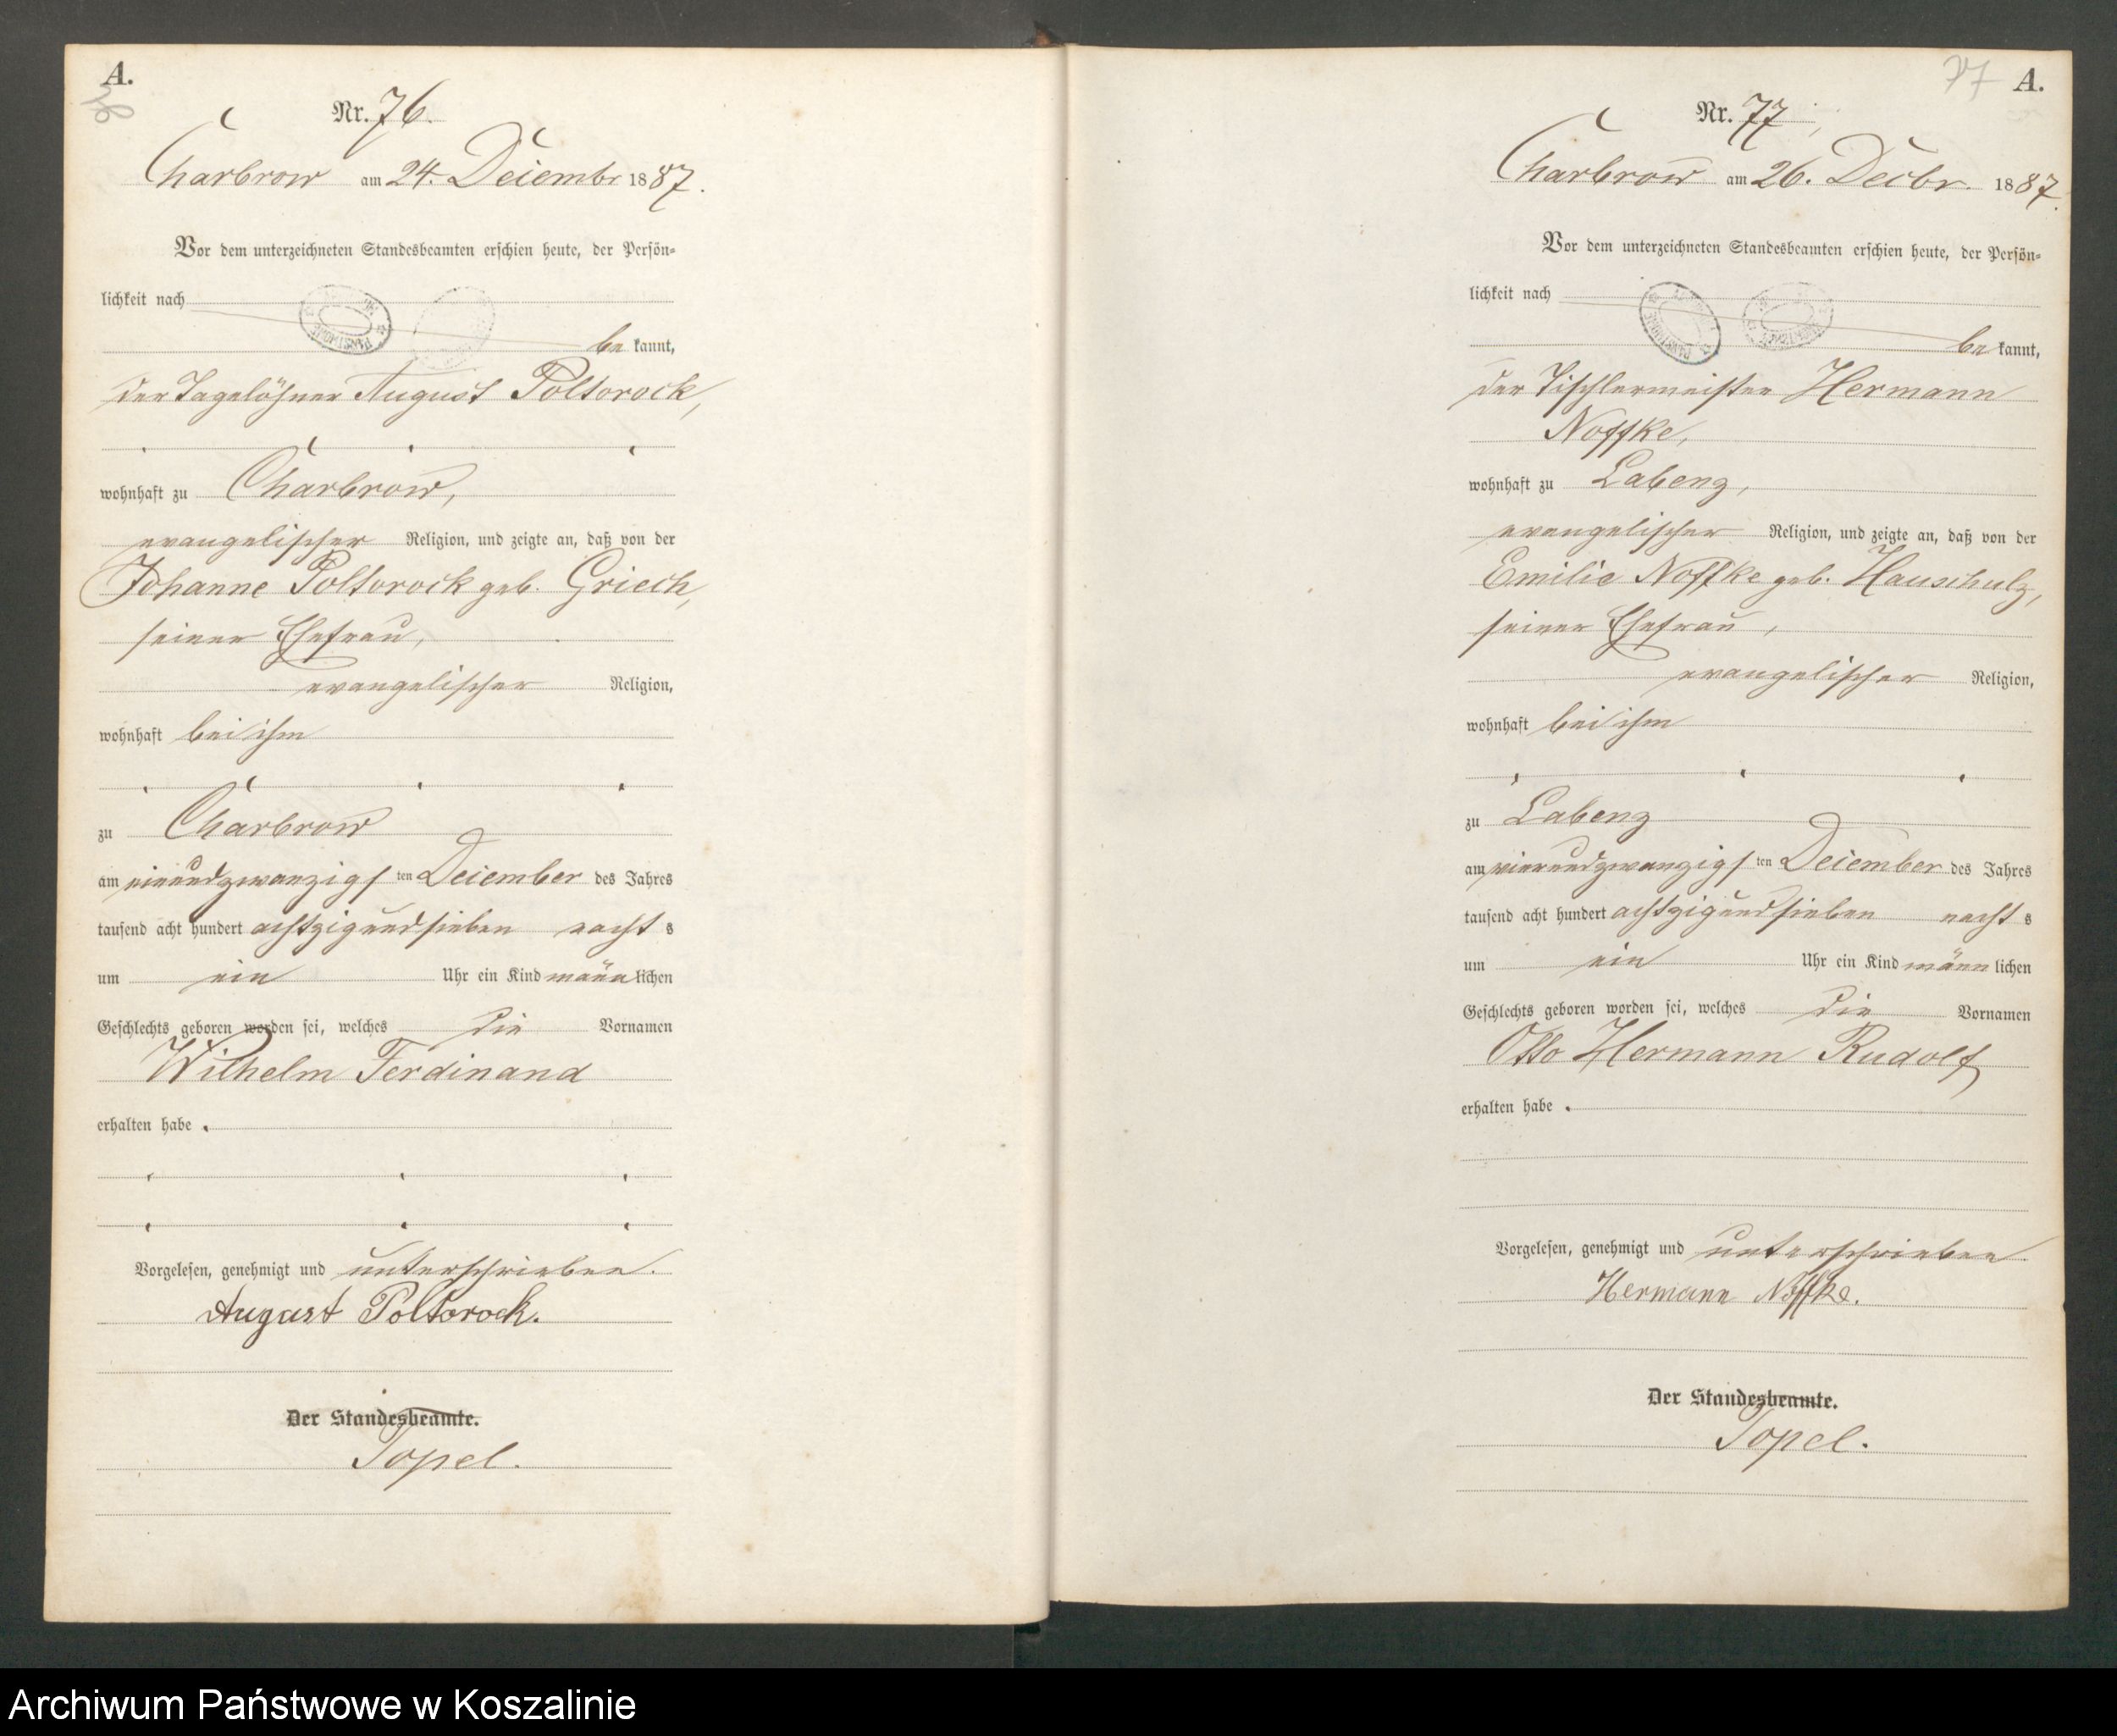 A.
76
Nr. 76.
Charbrow am 24. Dezembr 1887.
Vor dem unterzeichneten Standesbeamten erschien heute, der Persön-
lichkeit nach
be kannt,
der Tagelöhner August Poltorock,
wohnhaft zu Charbrow,
evangelischer Religion, und zeigte an, daß von der
Johanne Poltorock geb. Griech,
seiner Ehefrau,
evangelischer Religion,
wohnhaft bei ihm
zu Charbrow
am einundzwanzigs ten Dezember des Jahres
tausend acht hundert achtzig und sieben nacht s
um ein Uhr ein Kind männ lichen
Geschlechts geboren worden sei, welches die Vornamen
Wilhelm Ferdinand
erhalten habe .
Vorgelesen, genehmigt und unterschrieben.
August Poltorock.
Der Standesbeamte.
Topel.
77 A.
Nr. 77,
Charbrow am 26. Decbr. 1887.
Vor dem unterzeichneten Standesbeamten erschien heute, der Persön-
lichkeit nach
be kannt,
der Tischlermeister Hermann
Noffke,
wohnhaft zu Labenz,
evangelischer Religion, und zeigte an, daß von der
Emilie Noffke geb. Hauschulz,
seiner Ehefrau,
evangelischer Religion,
wohnhaft bei ihm
zu Labenz
am vierundzwanzigs ten Dezember des Jahres
tausend acht hundert achtzig und sieben nacht s
um ein Uhr ein Kind männ lichen
Geschlechts geboren worden sei, welches die Vornamen
Otto Hermann Rudolf
erhalten habe .
Vorgelesen, genehmigt und unterschrieben
Hermann Noffke.
Der Standesbeamte.
Topel.
Archiwum Państwowe w Koszalinie